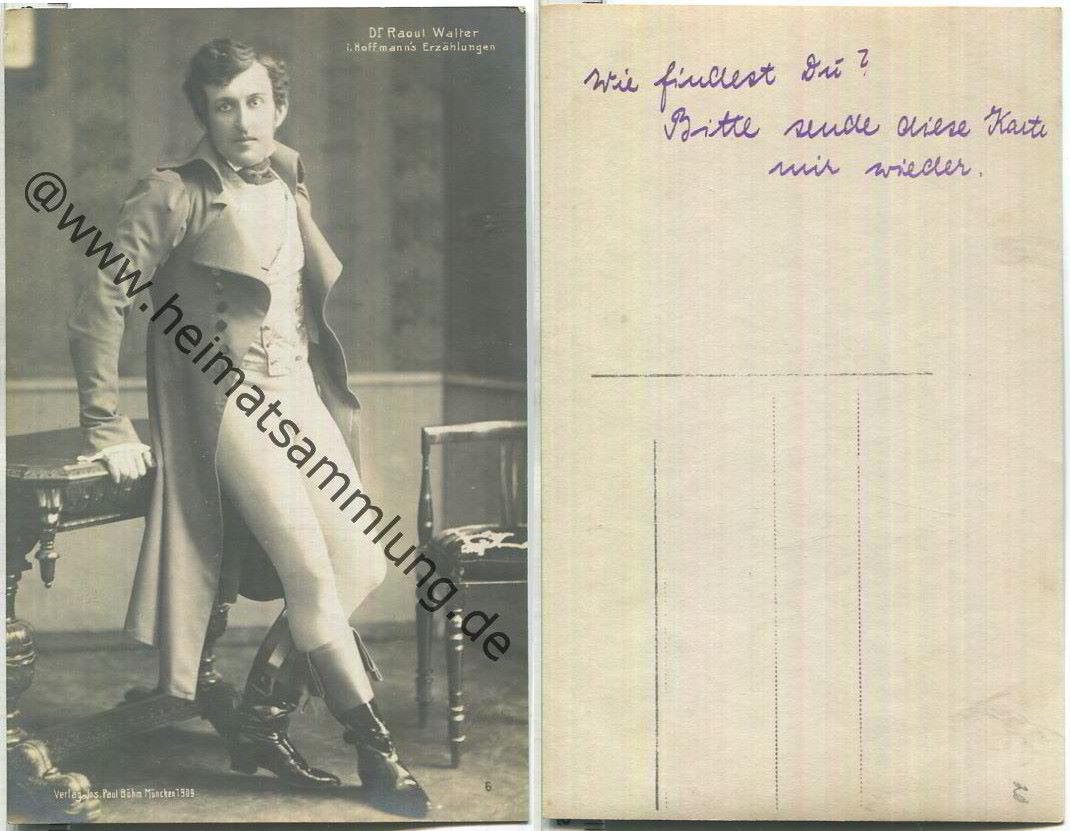 Dr Raoul Walter
i. Hoffmann's Erzählungen
@www.heimatsammlung.de
Verlag Jos. Paul Böhm München 1909
6
Wie findest Du?
Bitte sende diese Karte
mir wieder.
20